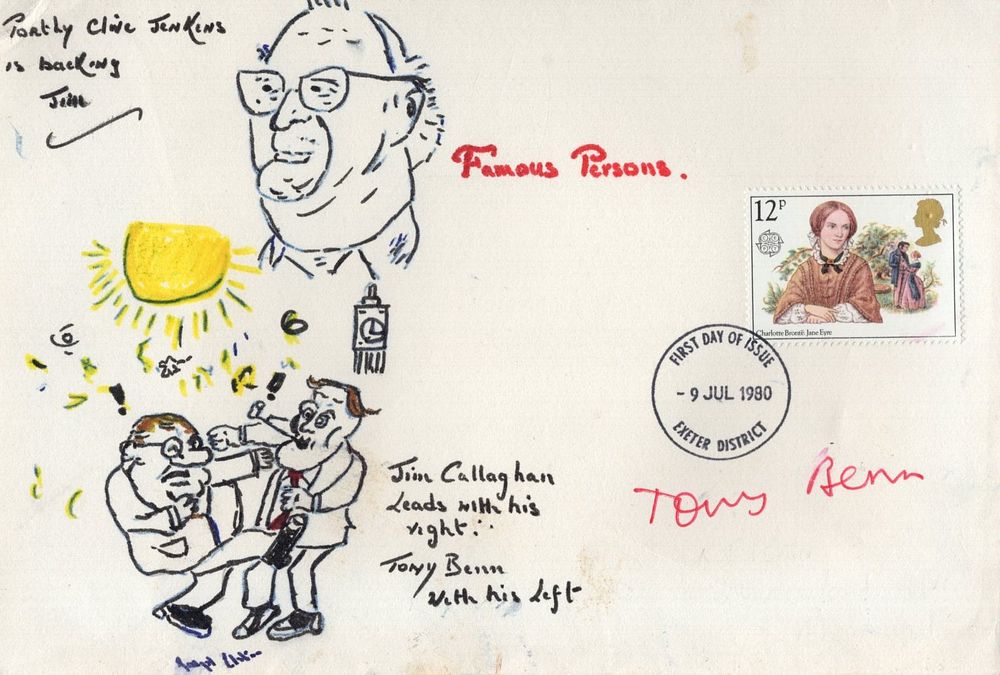 Porthy Clive Jenkens
is backing
Jim
Famous Persons.
12P
Charlotte Brontë: Jane Eyre
FIRST DAY OF ISSUE
- 9 JUL 1980
EXETER DISTRICT
Tony Benn
Jim Callaghan
Leads with his
right.
Tony Benn
With his Left